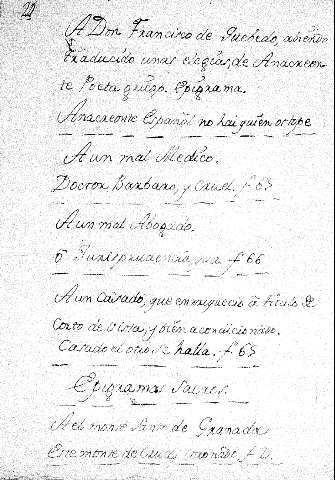 22
A Don Francisco de Quebedo, abiendo
traducido unas elegias, de Anacreon-
te Poeta griego. Epigrama.
Anacreonte Español no hai quien os tope
A un mal Medico.
Doctor Barbaro, y cruel. f 65
A un mal Abogado.
ô Jurisprudencia f 66
A un Casado, que enrriquecio a titulo de
Corto de vista, y bien acondicionado.
Casado el otro se halla. f 65
Epigramas Sacros.
A el monte Santo de Granada
Este monte de Cruzes coronado f